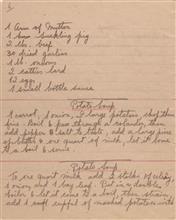 1 Arm of Mutton
1 suckling pig
2 lb. beef
30 dried garlics
1 lb. onions
2 catties lard
12 eggs
1 small bottle sauce
Potato Soup
1 carrot, 1 onion, 2 large potatoes, chop them
fine. Boil & pass through a colander, then
add pepper & salt to taste, add a large piece
of butter & one quart of milk, let it come
to a boil & serve.
Potato Soup
To one quart milk add 2 stalks of celery,
1 onion and 1 bay leaf. Put in a double
boiler & let it come to a boil, then strain,
add 1 cup of mashed potatoes with